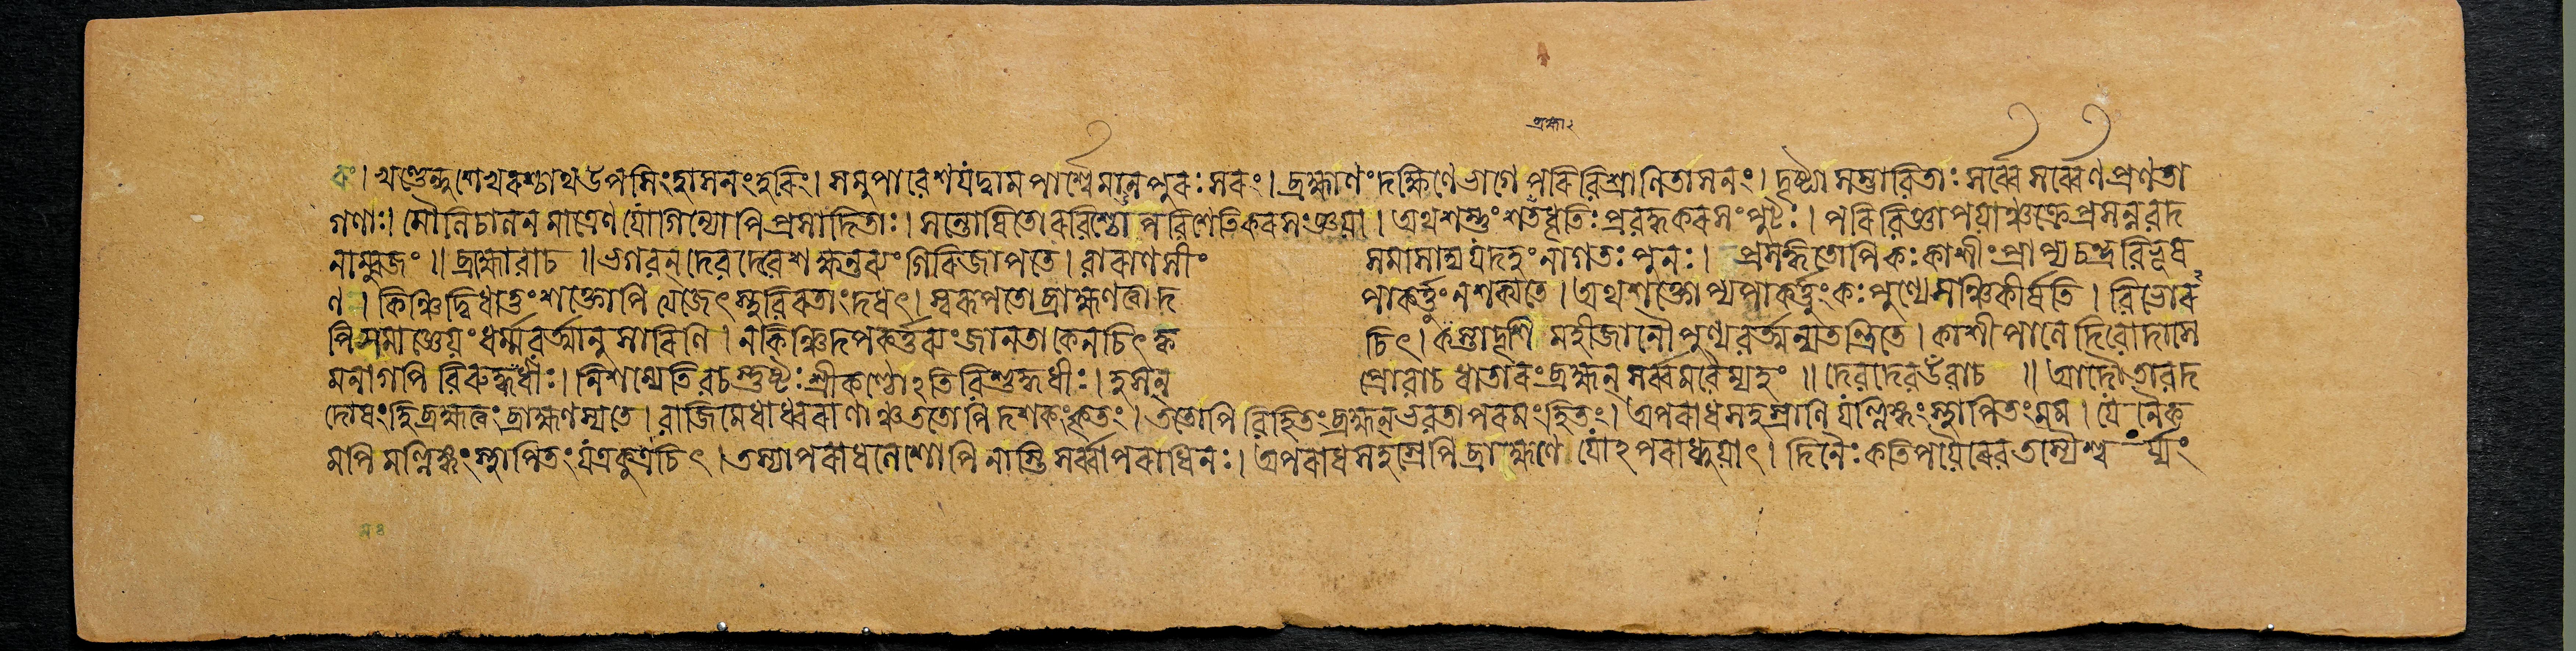 রং। খণ্ডেন্দুশেখরশ্চাথ উপসিংহাসনং হরিং। সমুপাবেশয়দ্বামপার্শ্বে মানপুরঃসরং। ব্রহ্মাণং দক্ষিণে ভাগে পরিবিশ্রাণিতাসনং। দৃষ্ট্যা সম্ভাবিতাঃ সর্ব্বে সর্ব্বেণ প্রণতা
গণাঃ। মৌলিচালনমাত্রেণ যোগিন্যোপি প্রসাদিতাঃ। সন্তোষিতো রবিশ্চোপবিশেতি করসংজ্ঞয়া। অথ শম্ভুং শতধৃতিঃ প্রবদ্ধকরসংপুটঃ। পরিবিজ্ঞাপয়াঞ্চক্রে প্রসন্নবদ
নাম্বুজং॥ ব্রহ্মোবাচ॥ ভগবন্ দেবদেবেশ ক্ষন্তব্যং গিরিজাপতে। বারাণসীং সমাসাদ্য যদহং নাগতঃ পুনঃ। প্রসঙ্গতোপি কঃ কাশীং প্রাপ্য চন্দ্রবিভূষ
ণ। কিঞ্চিদ্বিধাতুং শক্তোপি ত্যজেৎ স্থবিরতাং দধৎ। স্বরূপতো ব্রাহ্মণত্বাদপাকর্ত্তুং ন শক্যতে। অথ শক্তোপ্যপাকর্ত্তুং কঃ পুণ্যে সঞ্চিকীর্ষতি। বিভোর
পি সমাজ্ঞেয়ং ধর্ম্মবর্ত্মানুসারিণি। ন কিঞ্চিদপকর্ত্তব্যং জানতা কেনচিৎ ক্বচিৎ। কস্তাদৃশি মহীজানৌ পুণ্যবর্ত্মন্যতন্দ্রিতে। কাশীপালে দিবোদাসে
মনাগপি বিরুদ্ধধীঃ। নিশম্যেতি বচস্তুষ্টঃ শ্রীকণ্ঠোঽতিবিশুদ্ধধীঃ। হসন্ প্রোবাচ ধাতারং ব্রহ্মন্ সর্ব্বমবৈম্যহং॥ দেবদেব উবাচ॥ আদৌ তাবদ
দোষং হি ব্রহ্মত্বং ব্রাহ্মণস্য তে। বাজিমেধাধ্বরাণাঞ্চ ততোপি দশকং কৃতং। ততোপি বিহিতং ব্রহ্মন্ ভবতা পরমং হিতং। অপরাধসহস্রাণি যল্লিঙ্গং স্থাপিতং মম। যেনৈক
মপি মল্লিঙ্গং স্থাপিতং যত্র কুত্রচিৎ। তস্যাপরাধলেশোপি নাস্তি সর্ব্বাপরাধিনঃ। অপরাধসহস্রেপি ব্রাহ্মণে যোঽপরাধ্নুয়াৎ। দিনৈঃ কতিপয়ৈরেব তস্যৈশ্বর্য্যং